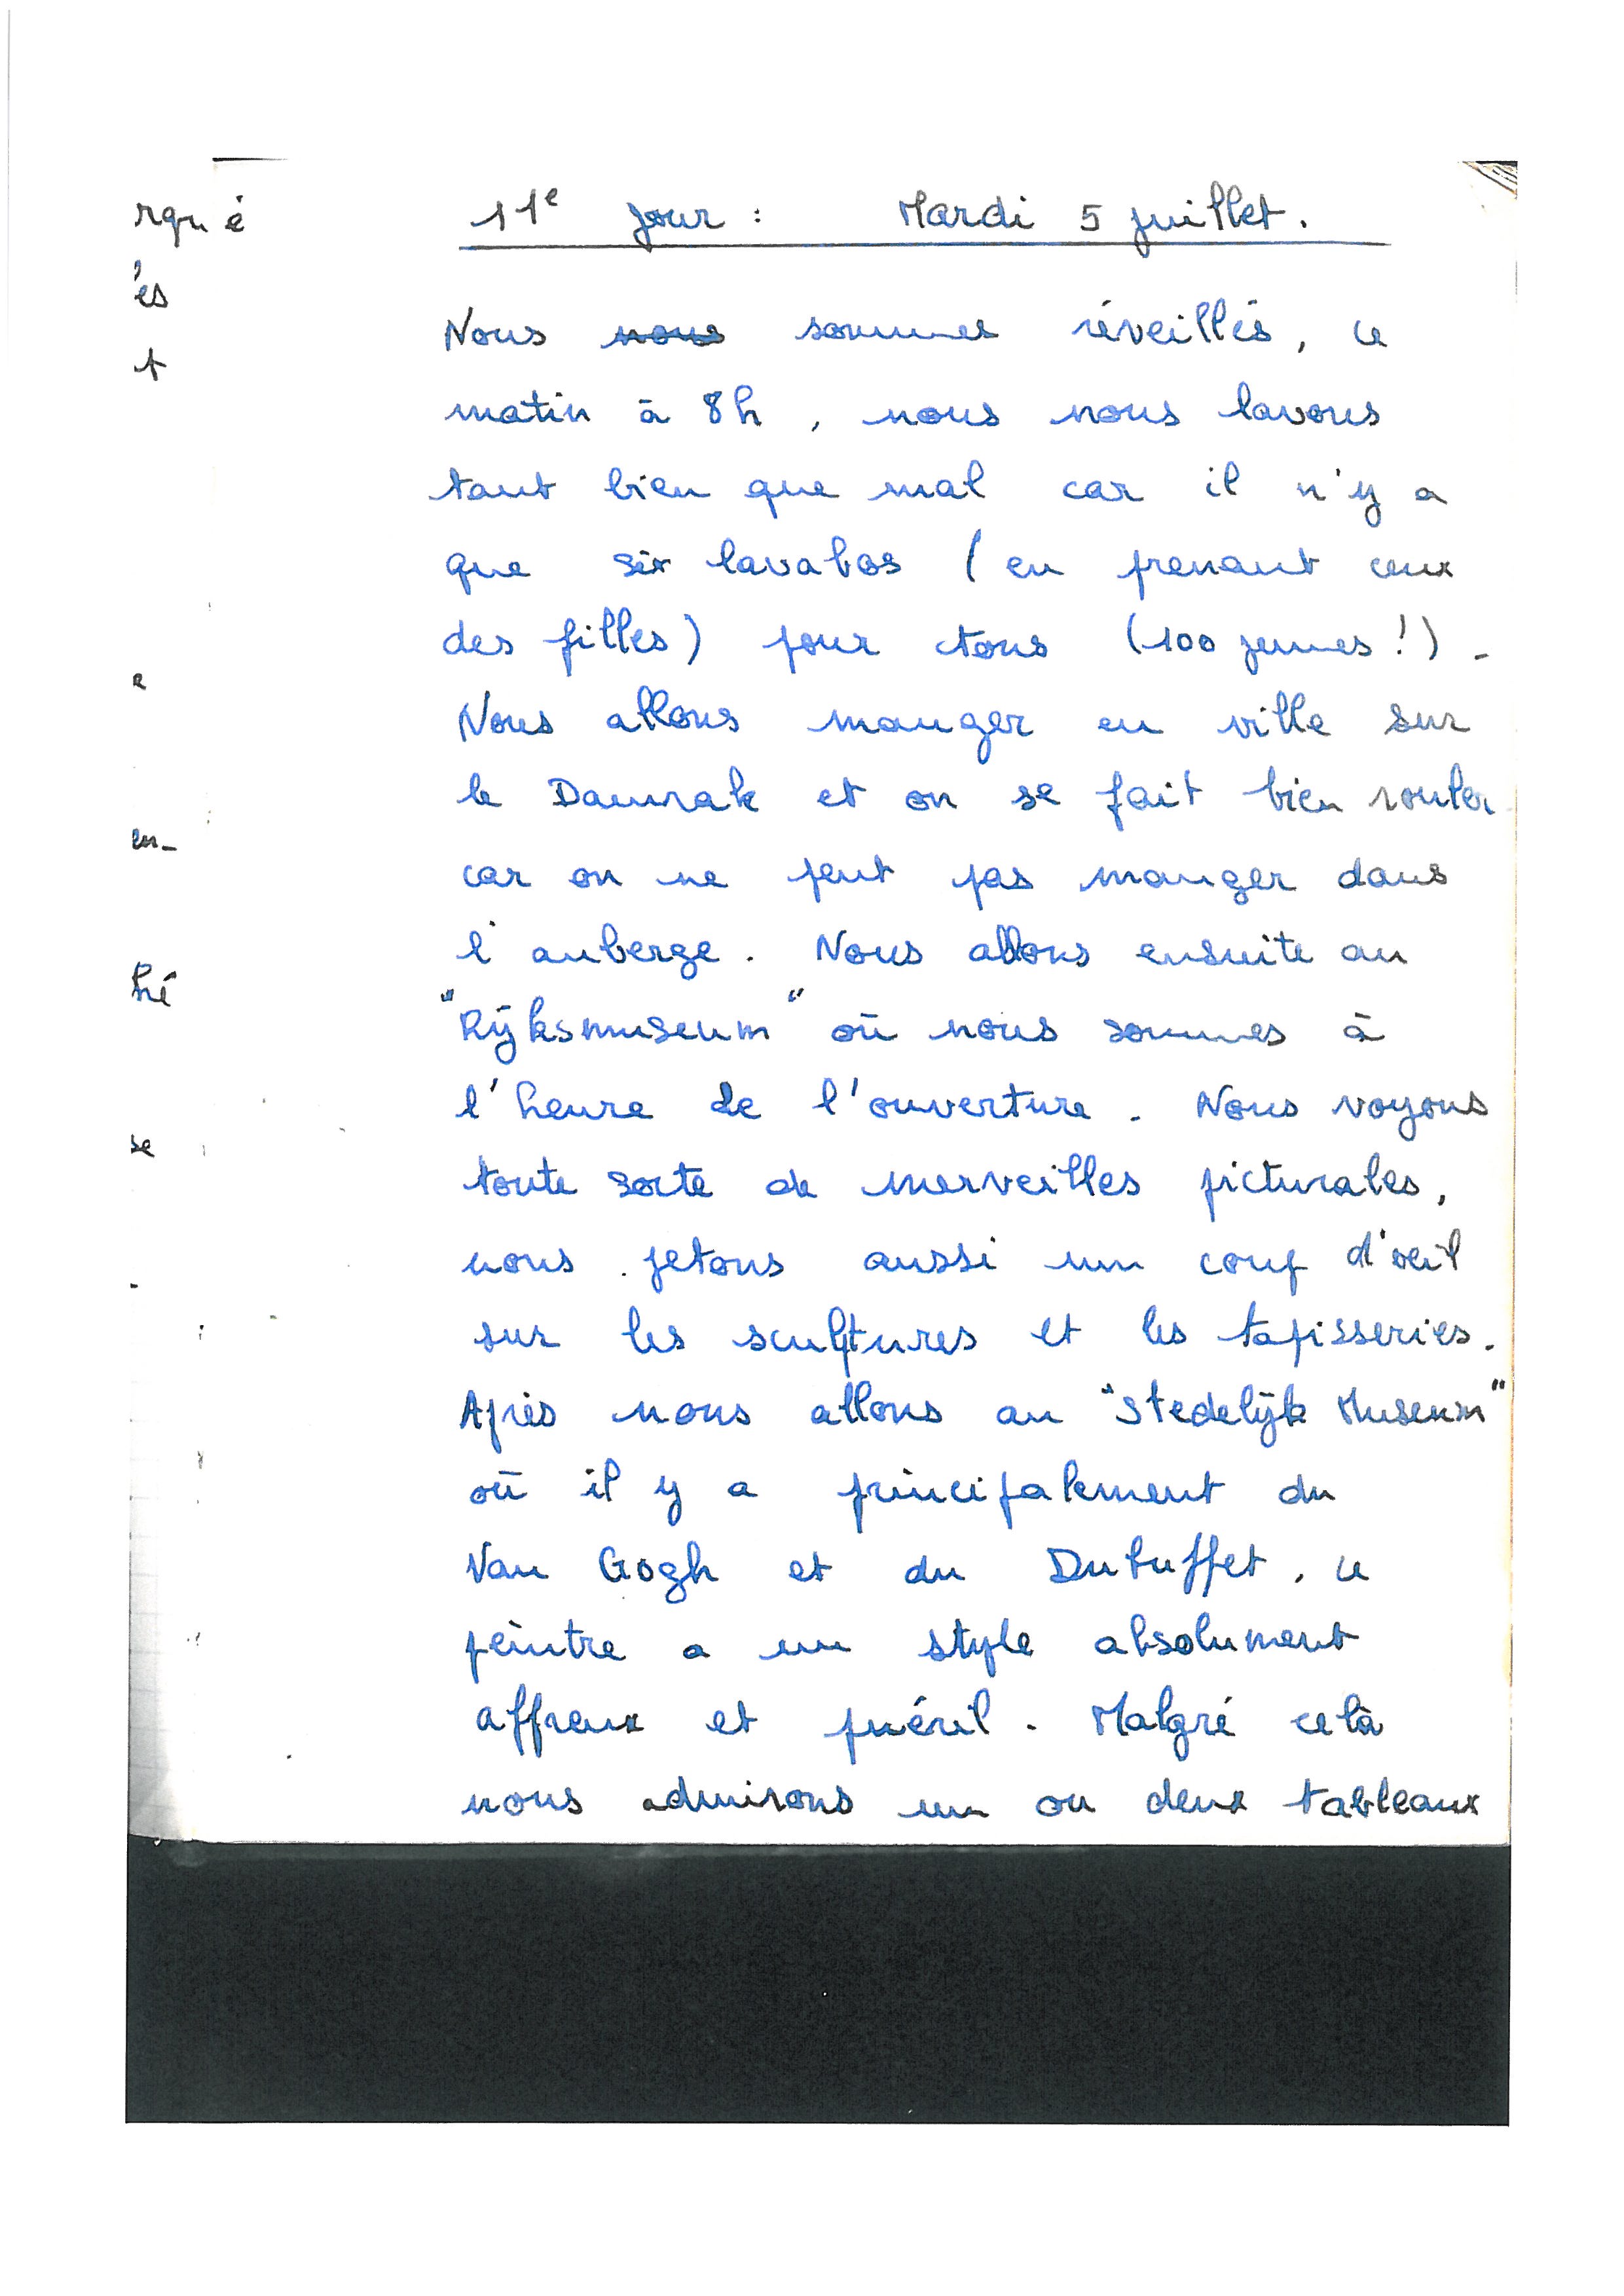 11e jour : Mardi 5 juillet.
Nous nous sommes réveillés, ce
matin à 8h, nous nous lavons
tant bien que mal car il n'y a
que six lavabos (en prenant ceux
des filles) pour tous (100 jeunes !).
Nous allons manger en ville sur
le Damrak et on se fait bien rouler
car on ne peut pas manger dans
l'auberge. Nous allons ensuite au
"Rijksmuseum" où nous sommes à
l'heure de l'ouverture. Nous voyons
toute sorte de merveilles picturales,
nous jetons aussi un coup d'oeil
sur les sculptures et les tapisseries.
Après nous allons au "Stedelijk Museum"
où il y a principalement du
Van Gogh et du Dubuffet, ce
peintre a un style absolument
affreux et puéril. Malgré celà
nous admirons un ou deux tableaux
rqué
és
t
e
en-
hé
se